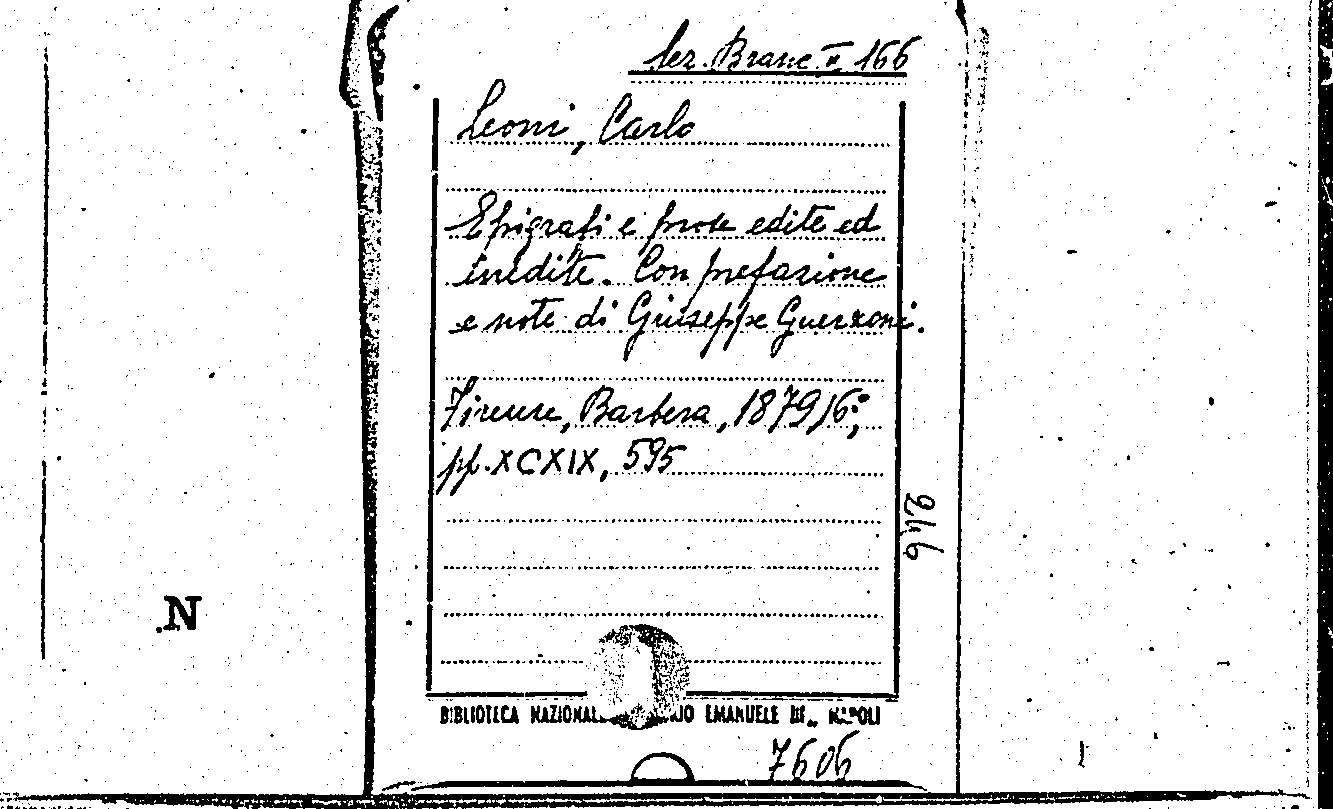 Sez. Branc. II 166
Leoni, Carlo
Epigrafi e prose edite ed
inedite. Con prefazione
e note di Giuseppe Guerzoni.
Firenze, Barbera, 1879, 16°,
pp. XCXIX, 595
246
N
BIBLIOTECA NAZIONALE EMANUELE III„ NAPOLI
7606